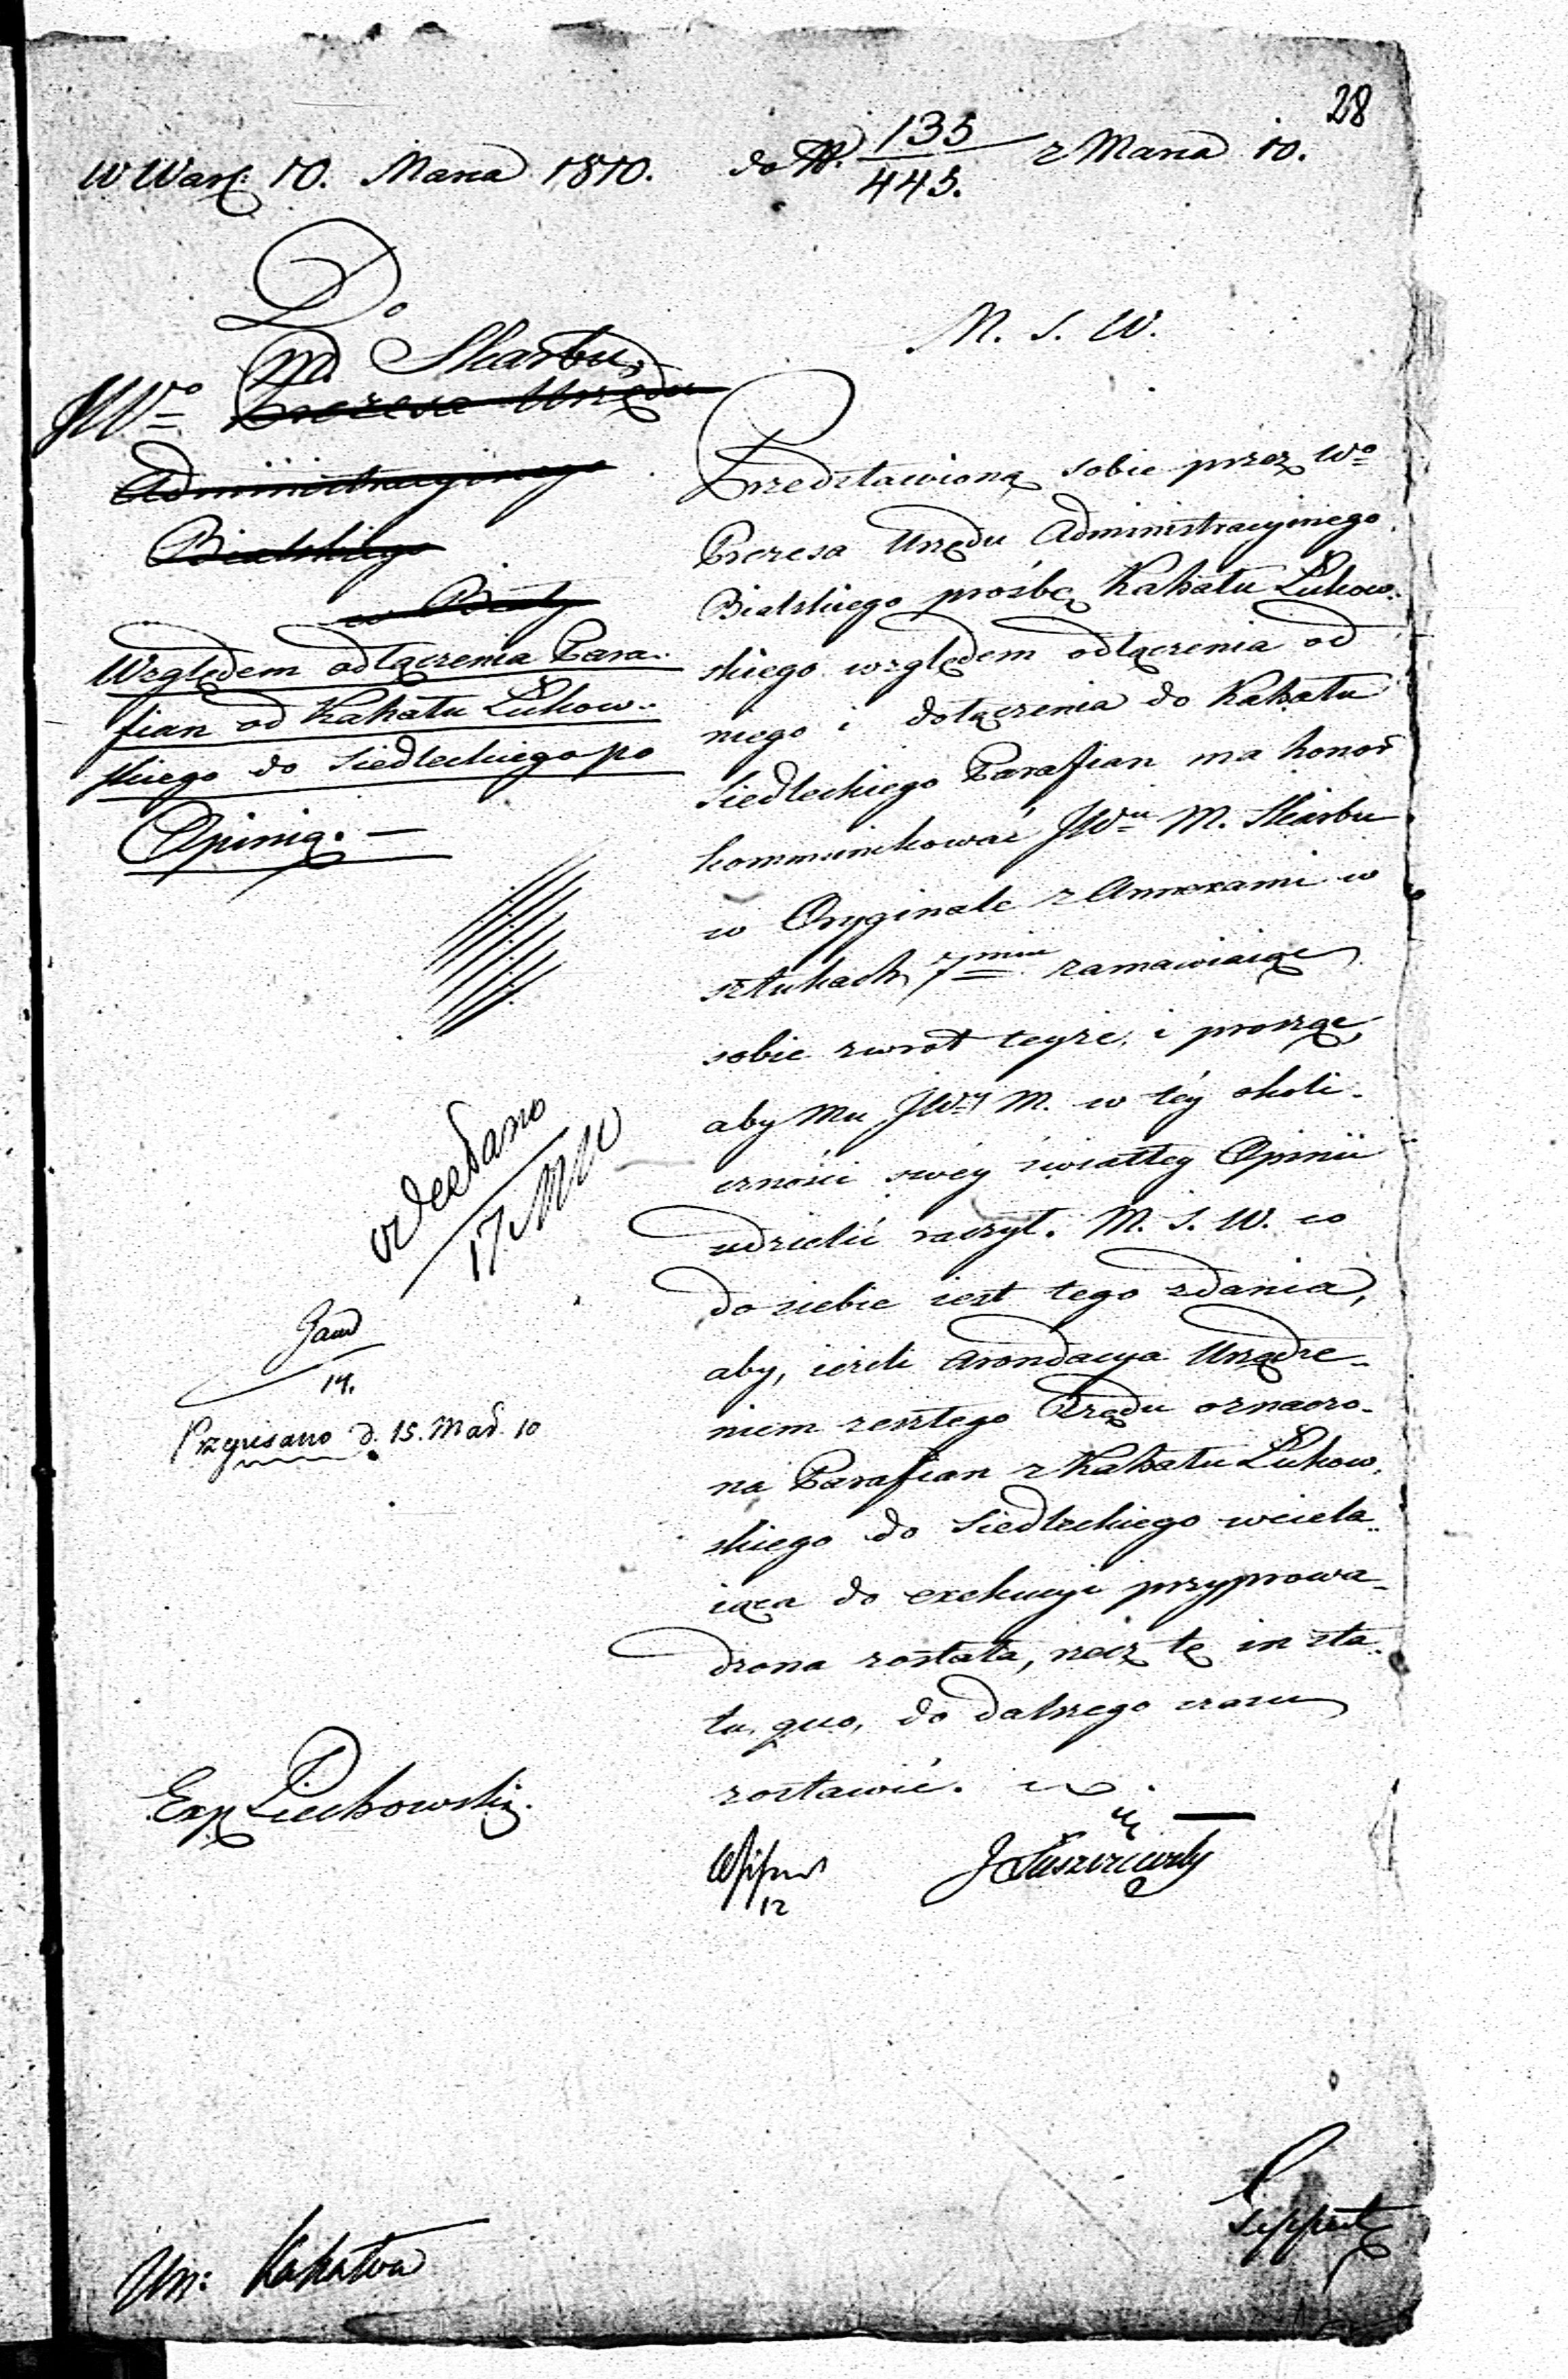 28
w Wars. 10. Marca 1810. do N. 135/445. z Marca 10.
Do
M. Skarbu
JWo Prezesa Urzędu
Administracyinego
Bialskiego
w Biały
Względem odłączenia Para-
fian od Kahału Łukow-
skiego do Siedleckiego po
Opinią. —
odesłano
17
14.
Przypisano d. 15. Mar. 10
M. S. W.
Przedstawioną sobie przez Wo
Prezesa Urzędu Administracyinego
Bialskiego prośbę Kahału Łukow-
skiego względem odłączenia od
niego i dołączenia do Kahału
Siedleckiego Parafian ma honor
kommunikować JWu M. Skarbu
w Oryginale z Annexami w
sztukach 7miu zamawiaiąc
sobie zwrot teyże, i prosząc
aby mu JWy M. w téy okoli-
czności swey światłey Opinii
udzielić raczył. M. S. W. co
do siebie iest tego zdania,
aby, ieżeli Arondacya Urządze-
niem zeszłego Rządu oznaczo-
na Parafian z Kahału Łukow-
skiego do Siedleckiego wciela-
iąca do exekucyi przyprowa-
dzona została, rzecz tę in sta-
tu quo, do dalszego czasu
zostawić.
Exp. Piechowski.
12
J Łuszczewski
Lippert
Kahałów